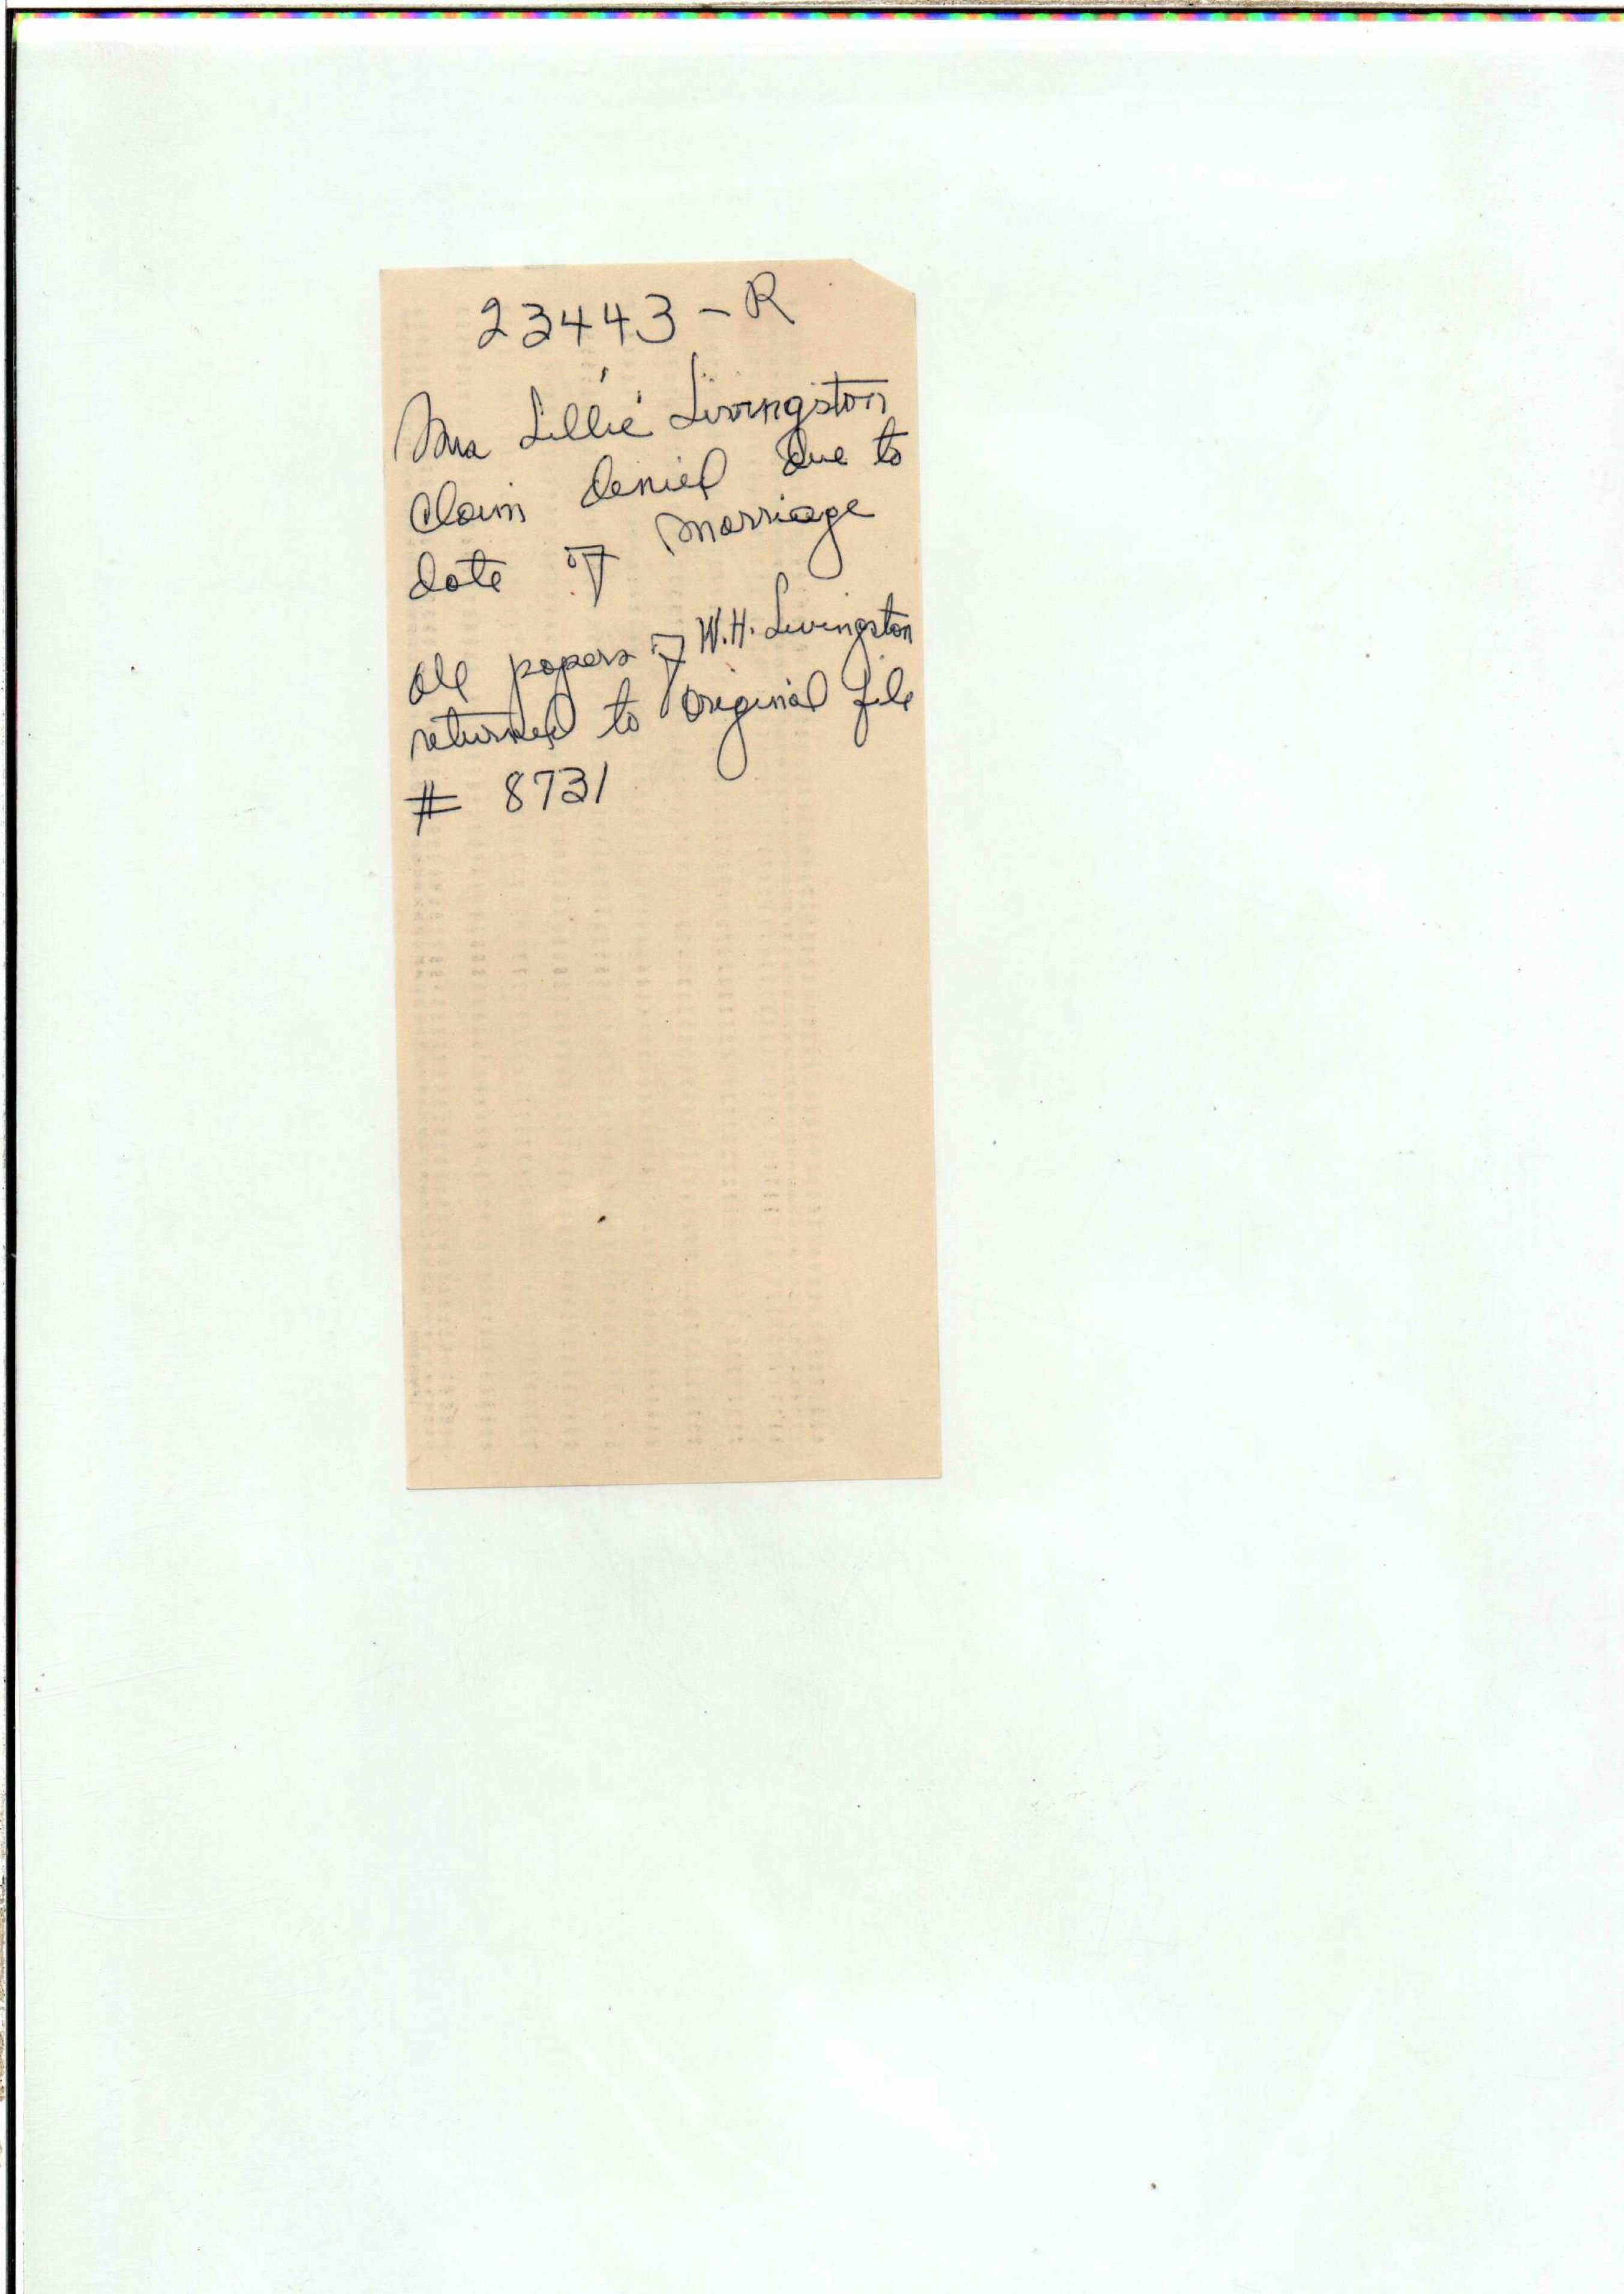 23443-R
Mrs Lillie Livingston
Claim denied due to
date of marriage
All papers of W.H. Livingston
returned to original file
# 8731